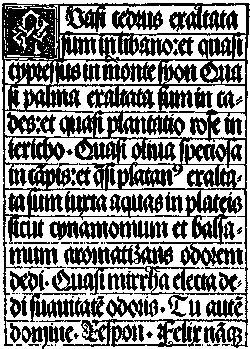 Quasi cedrus exaltata
sum in libano: et quasi
cypressus in monte syon Qua
si palma exaltata sum in ca-
des: et quasi plantatio rose in
iericho. Quasi oliua speciosa
in cāpis: et q̄si platanꝰ exalta-
ta sum iuxta aquas in plateis
sicut cynamomum et balsa-
mum aromatizans odorem
dedi. Quasi mirrha electa de-
di suauitatē odoris. Tu autē
domine. Respon. Felix nāqꝫ